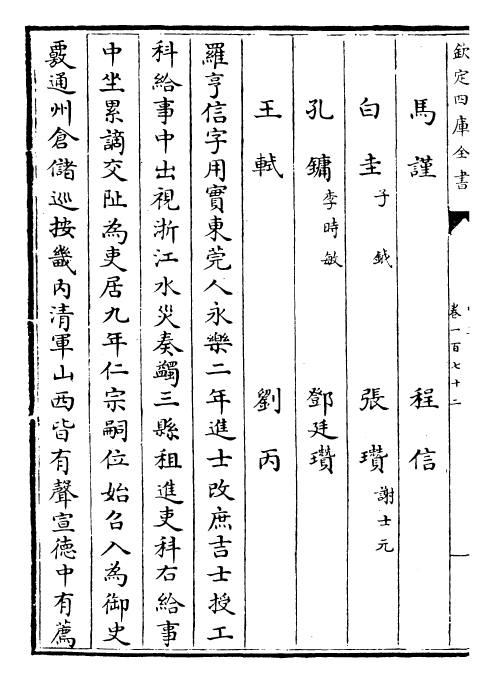 欽定四庫全書
卷一百七十二
馬謹 程信
白圭 子鉞 張瓚 謝士元
孔鏞 李時敏 鄧廷瓚
王軾 劉丙
羅亨信字用實東莞人永樂二年進士改庶吉士授工
科給事中出視浙江水災奏蠲三縣租進吏科右給事
中坐累謫交阯為吏居九年仁宗嗣位始召入為御史
覈通州倉儲巡按畿内清軍山西皆有聲宣德中有薦